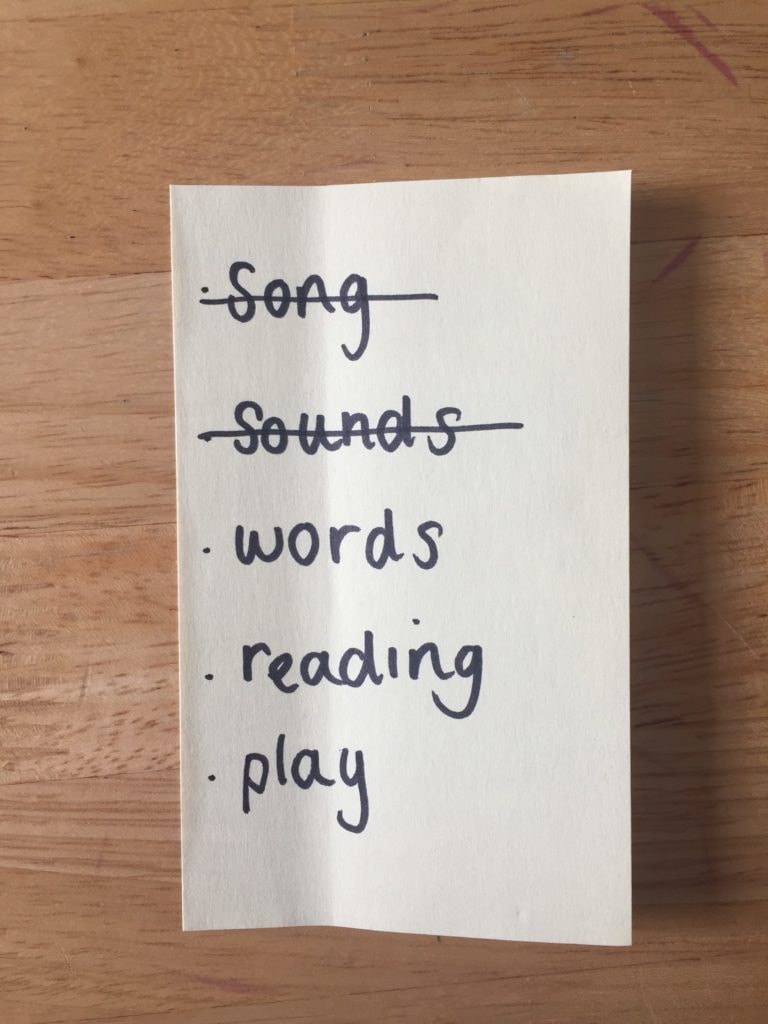 · Song
· Sounds
· words
· reading
· play